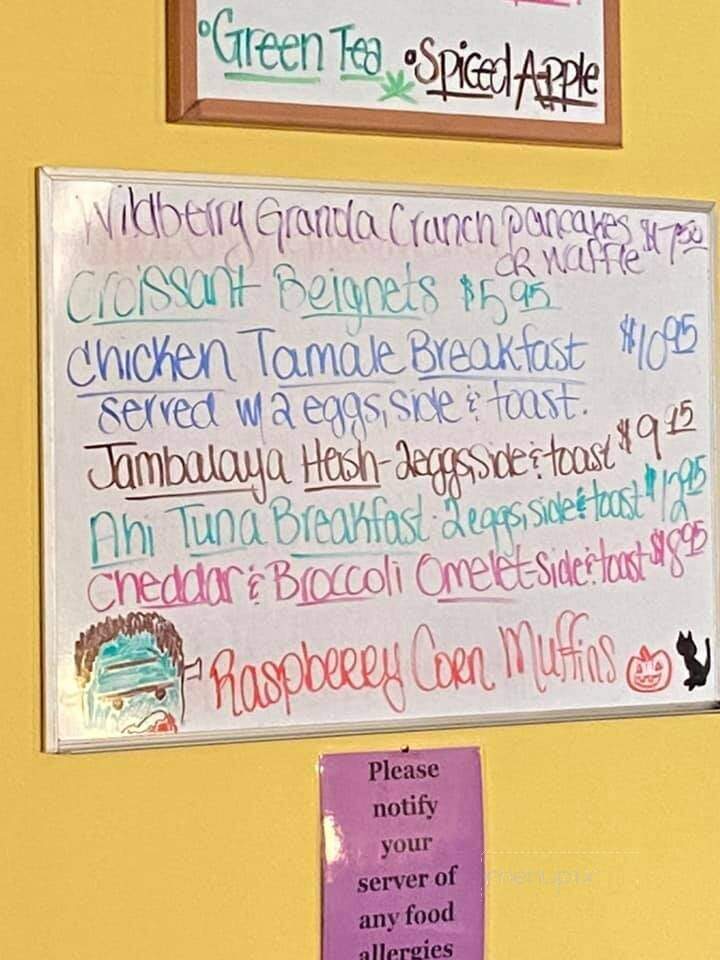 •Green Tea •Spiced Apple
Wildberry Granola Crunch pancakes $7.50
OR Waffle
Croissant Beignets $5.95
Chicken Tamale Breakfast $10.95
served w/ 2 eggs, side & toast.
Jambalaya Hash - 2eggs, side & toast $9.95
Ahi Tuna Breakfast - 2eggs, side & toast $12.95
Cheddar & Broccoli Omelet - Side & toast $8.95
Raspberry Corn Muffins
Please
notify
your
server of
any food
allergies
menupix